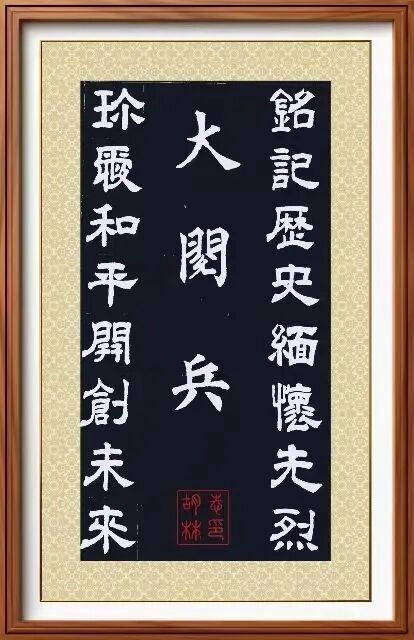 銘記歷史緬懷先烈
大閱兵
珎愛和平開創未來